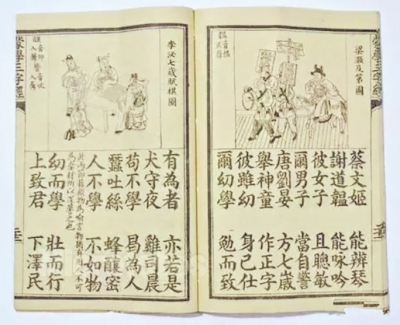 蒙學三字經
梁灝及第圖
蔡文姬 能辨琴
謝道韞 能咏吟
彼女子 且聰敏
爾男子 當自警
唐劉晏 方七歲
舉神童 作正字
彼雖幼 身已仕
爾幼學 勉而致
李泌七歲賦棋圖
有為者 亦若是
犬守夜 雞司晨
苟不學 曷為人
蠶吐絲 蜂釀蜜
人不學 不如物
幼而學 壯而行
上致君 下澤民
蒙學三字經